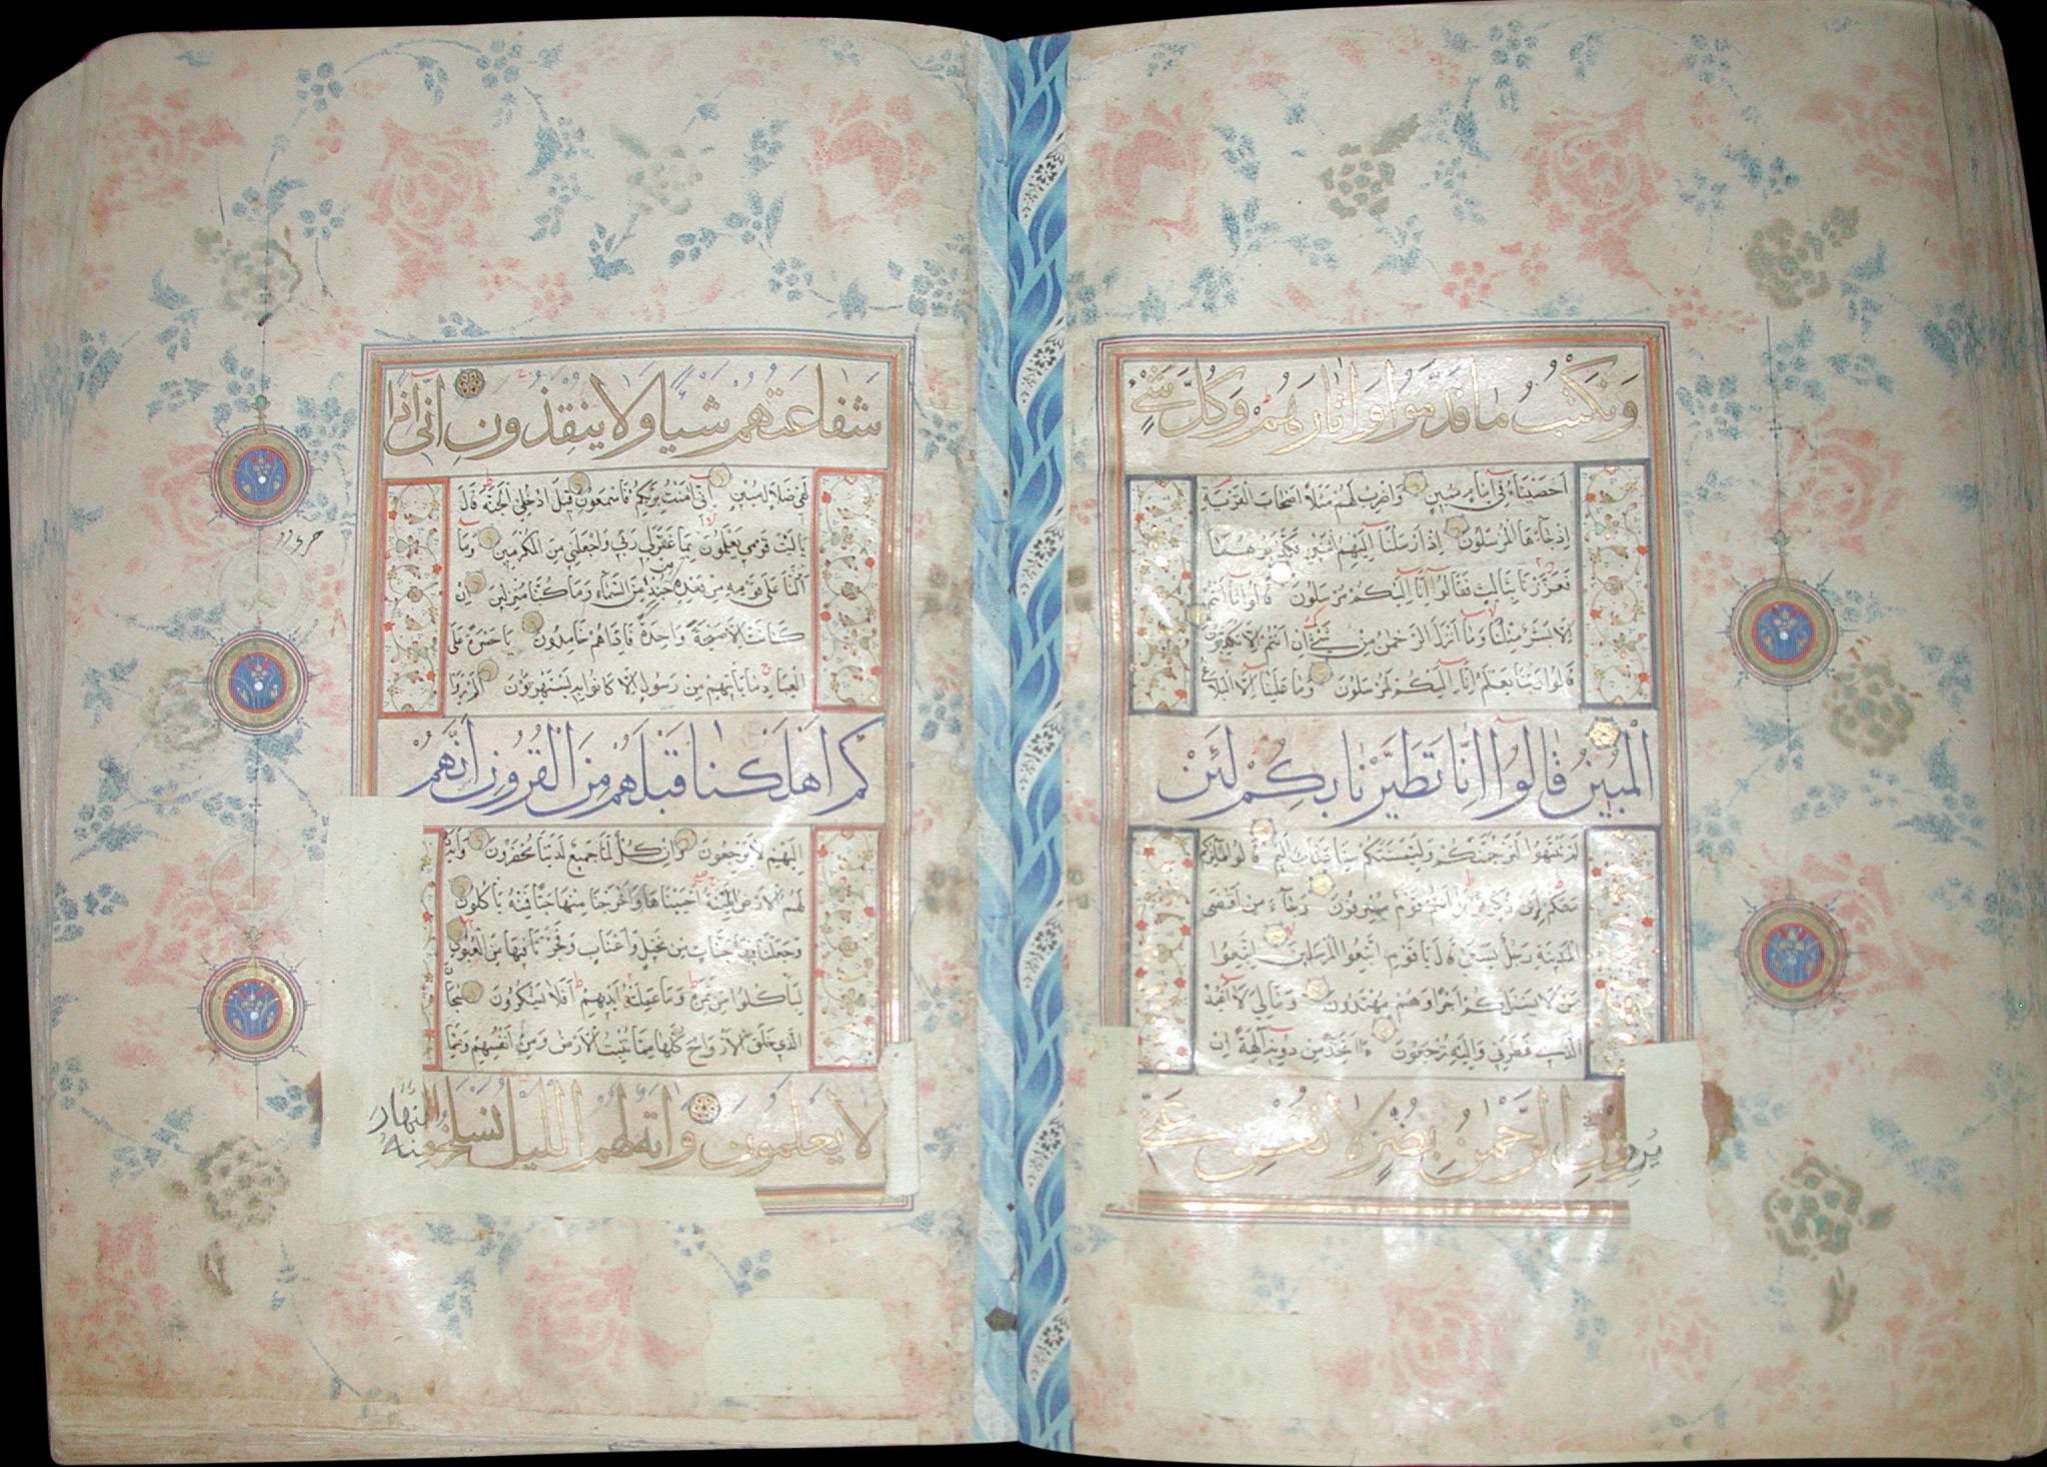 وَنَكْتُبُ مَا قَدَّمُوا وَاٰثَارَهُمْ وَكُلَّ شَيْءٍ
اَحْصَيْنَاهُ فِي اِمَامٍ مُبِينٍ وَاضْرِبْ لَهُمْ مَثَلًا اَصْحَابَ الْقَرْيَةِ
اِذْ جَآءَهَا الْمُرْسَلُونَ اِذْ اَرْسَلْنَا اِلَيْهِمُ اثْنَيْنِ فَكَذَّبُوهُمَا
فَعَزَّزْنَا بِثَالِثٍ فَقَالُوا اِنَّا اِلَيْكُمْ مُرْسَلُونَ قَالُوا مَا اَنْتُمْ
اِلَّا بَشَرٌ مِثْلُنَا وَمَا اَنْزَلَ الرَّحْمٰنُ مِنْ شَيْءٍ اِنْ اَنْتُمْ اِلَّا تَكْذِبُونَ
قَالُوا رَبُّنَا يَعْلَمُ اِنَّا اِلَيْكُمْ لَمُرْسَلُونَ وَمَا عَلَيْنَا اِلَّا الْبَلَاغُ
الْمُبِينُ قَالُوا اِنَّا تَطَيَّرْنَا بِكُمْ لَئِنْ
لَمْ تَنْتَهُوا لَنَرْجُمَنَّكُمْ وَلَيَمَسَّنَّكُمْ مِنَّا عَذَابٌ اَلِيمٌ قَالُوا طَائِرُكُمْ
مَعَكُمْ اَئِنْ ذُكِّرْتُمْ بَلْ اَنْتُمْ قَوْمٌ مُسْرِفُونَ وَجَآءَ مِنْ اَقْصَى
الْمَدِينَةِ رَجُلٌ يَسْعٰى قَالَ يَا قَوْمِ اتَّبِعُوا الْمُرْسَلِينَ اتَّبِعُوا
مَنْ لَا يَسْئَلُكُمْ اَجْرًا وَهُمْ مُهْتَدُونَ وَمَا لِيَ لَا اَعْبُدُ
الَّذِي فَطَرَنِي وَاِلَيْهِ تُرْجَعُونَ ءَاَتَّخِذُ مِنْ دُونِهِ اٰلِهَةً اِنْ
يُرِدْنِ الرَّحْمٰنُ بِضُرٍّ لَا تُغْنِ عَنِّي
شَفَاعَتُهُمْ شَيْئًا وَلَا يُنْقِذُونِ اِنِّي اِذًا
لَفِي ضَلَالٍ مُبِينٍ اِنِّي اٰمَنْتُ بِرَبِّكُمْ فَاسْمَعُونِ قِيلَ ادْخُلِ الْجَنَّةَ قَالَ
يَا لَيْتَ قَوْمِي يَعْلَمُونَ بِمَا غَفَرَ لِي رَبِّي وَجَعَلَنِي مِنَ الْمُكْرَمِينَ وَمَا
اَنْزَلْنَا عَلٰى قَوْمِهِ مِنْ بَعْدِهِ مِنْ جُنْدٍ مِنَ السَّمَآءِ وَمَا كُنَّا مُنْزِلِينَ اِنْ
كَانَتْ اِلَّا صَيْحَةً وَاحِدَةً فَاِذَا هُمْ خَامِدُونَ يَا حَسْرَةً عَلَى
الْعِبَادِ مَا يَأْتِيهِمْ مِنْ رَسُولٍ اِلَّا كَانُوا بِهِ يَسْتَهْزِؤُنَ اَلَمْ يَرَوْا
كَمْ اَهْلَكْنَا قَبْلَهُمْ مِنَ الْقُرُونِ اَنَّهُمْ
اِلَيْهِمْ لَا يَرْجِعُونَ وَاِنْ كُلٌّ لَمَّا جَمِيعٌ لَدَيْنَا مُحْضَرُونَ وَاٰيَةٌ
لَهُمُ الْاَرْضُ الْمَيْتَةُ اَحْيَيْنَاهَا وَاَخْرَجْنَا مِنْهَا حَبًّا فَمِنْهُ يَأْكُلُونَ
وَجَعَلْنَا فِيهَا جَنَّاتٍ مِنْ نَخِيلٍ وَاَعْنَابٍ وَفَجَّرْنَا فِيهَا مِنَ الْعُيُونِ
لِيَأْكُلُوا مِنْ ثَمَرِهِ وَمَا عَمِلَتْهُ اَيْدِيهِمْ اَفَلَا يَشْكُرُونَ سُبْحَانَ
الَّذِي خَلَقَ الْاَزْوَاجَ كُلَّهَا مِمَّا تُنْبِتُ الْاَرْضُ وَمِنْ اَنْفُسِهِمْ وَمِمَّا
لَا يَعْلَمُونَ وَاٰيَةٌ لَهُمُ اللَّيْلُ نَسْلَخُ مِنْهُ النَّهَارَ